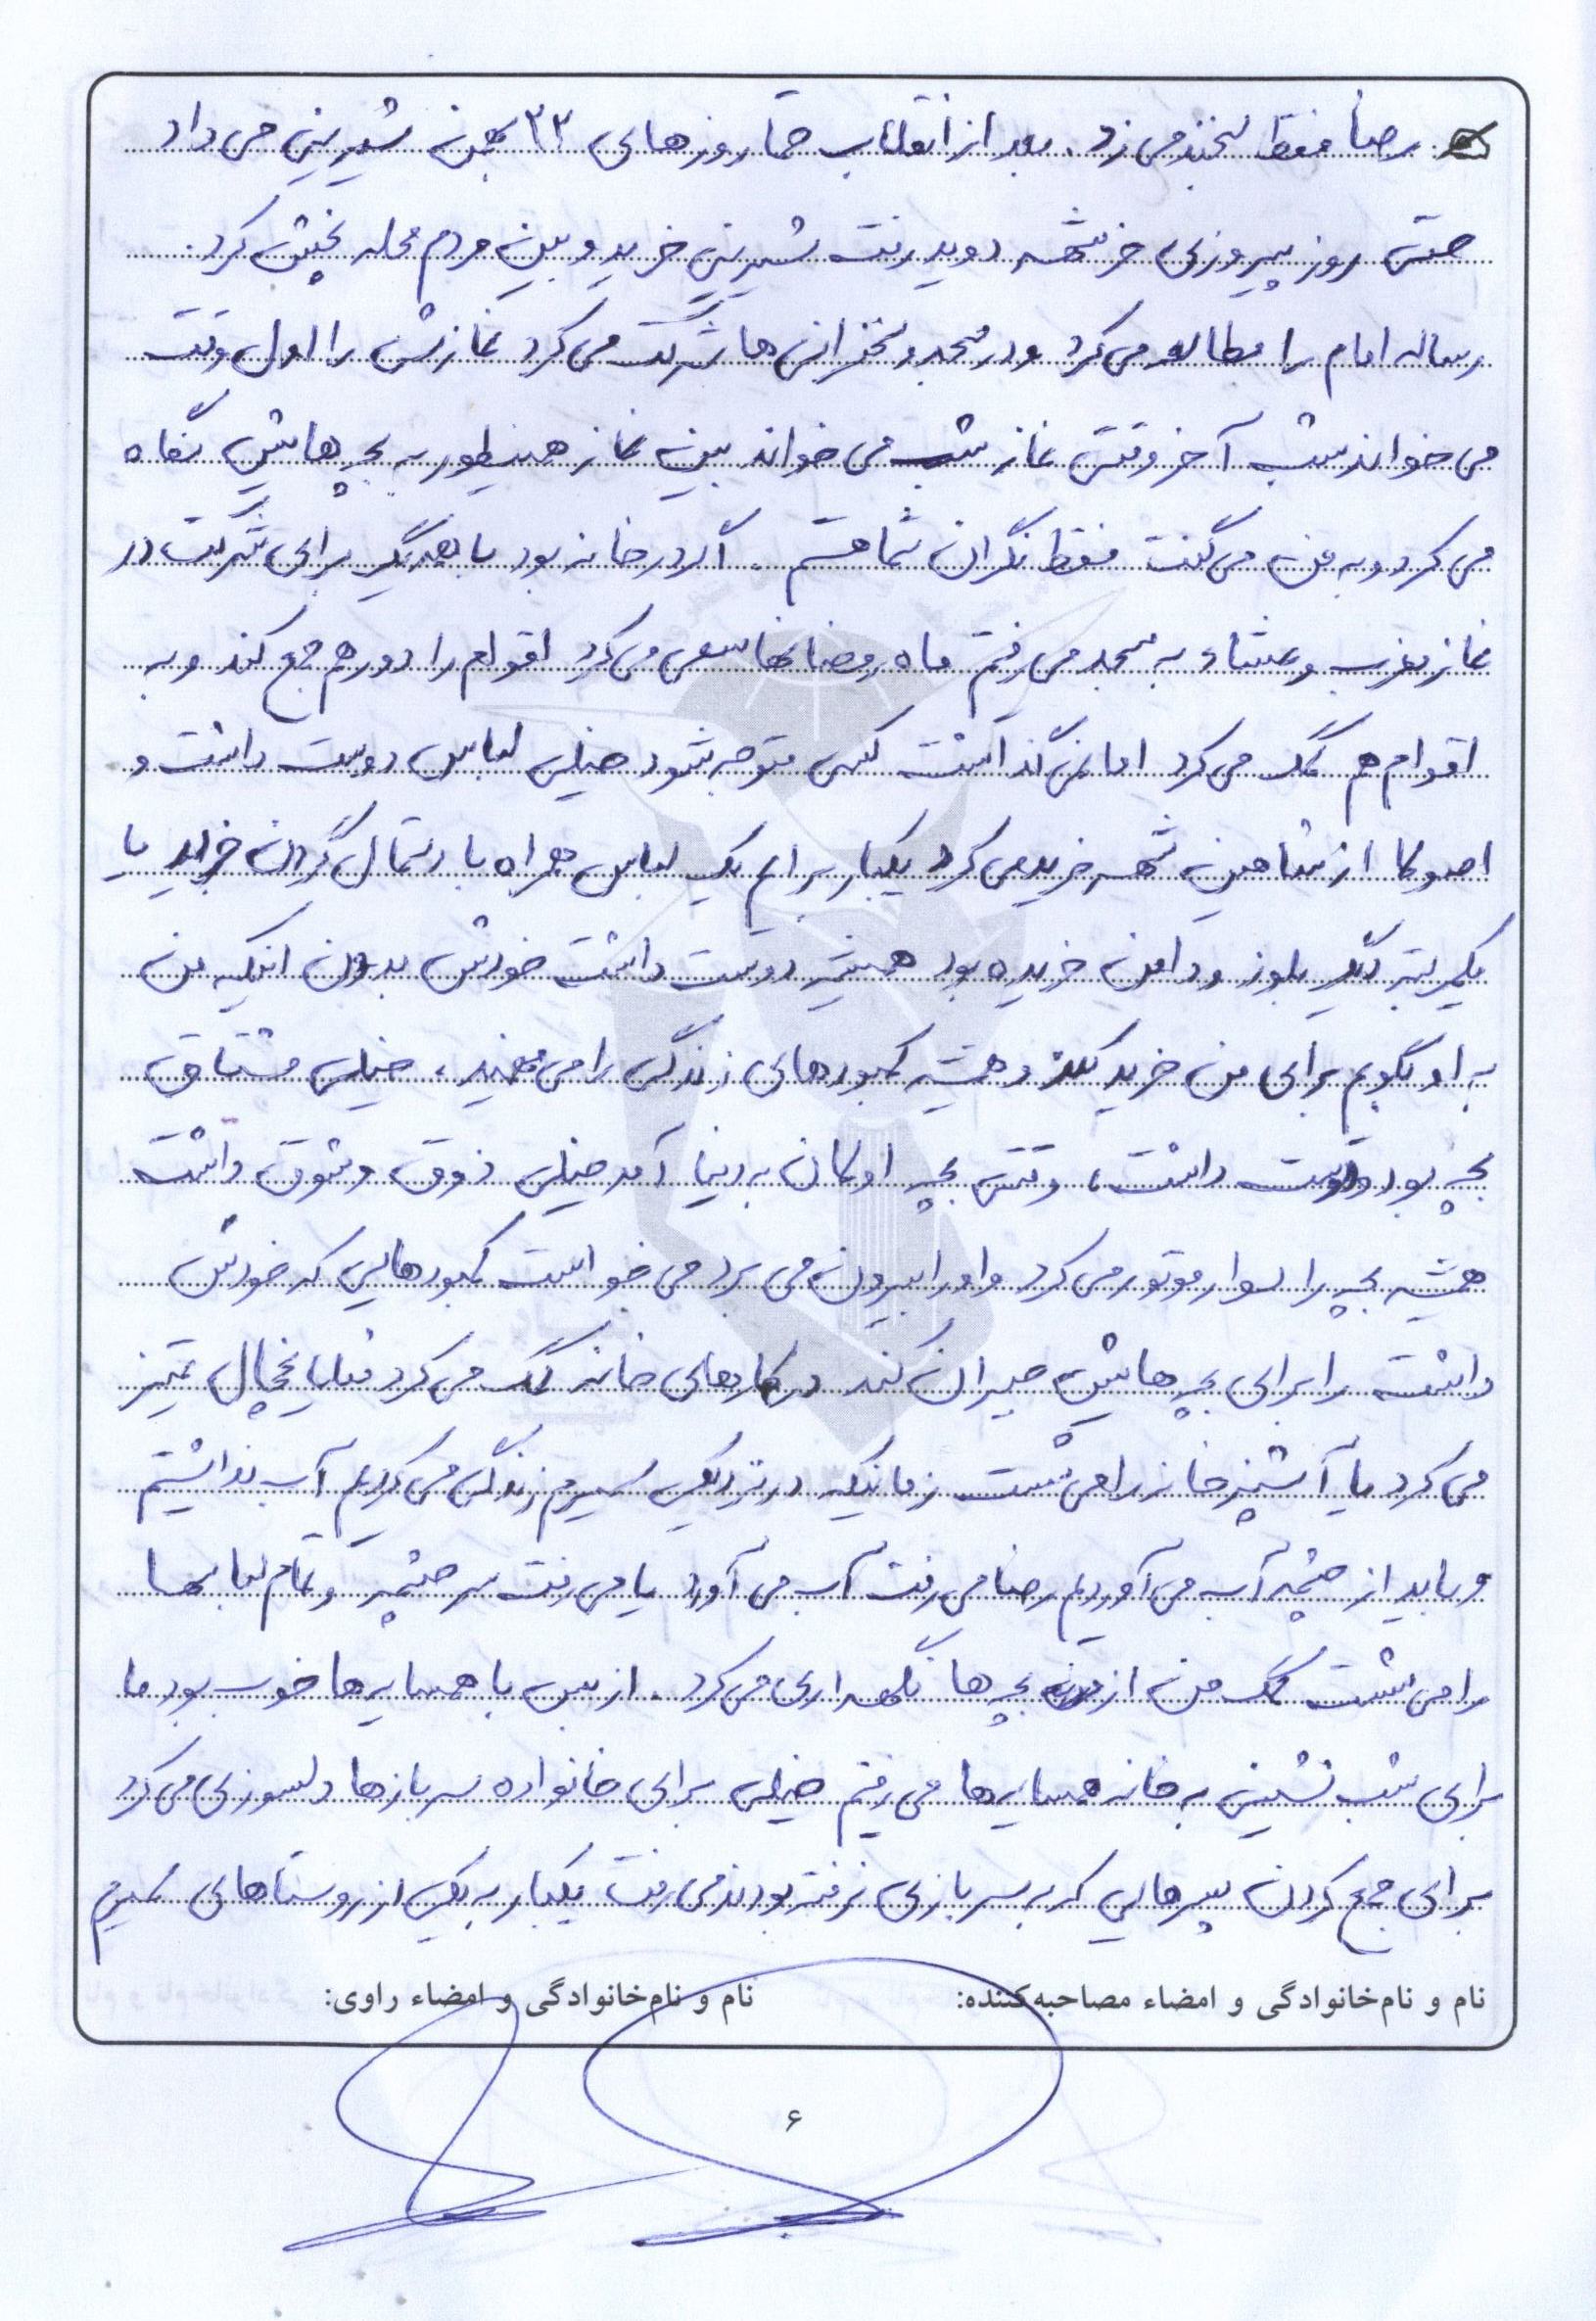 رضا فقط لبخند می زد. بعد از انقلاب حتما روزهای ۲۲ بهمن شیرینی می داد
حتی روز پیروزی خرمشهر دوید رفت شیرینی خرید و بین مردم محله پخش کرد.
رساله امام را مطالعه می کرد و در مسجد و سخنرانی ها شرکت می کرد نمازش را اول وقت
می خواند شب آخر وقتی نماز شب می خواند بین نماز همینطور به بچه هایش نگاه
می کرد و به من می گفت فقط نگران شما هستم. اگر در خانه بود با همدیگر برای شرکت در
نماز مغرب و عشاء به مسجد می رفتیم ماه رمضانها سعی می کرد اقوام را دور هم جمع کند و به
اقوام هم کمک می کرد اما نمی گذاشت کسی متوجه شود خیلی لباس دوست داشت و
اصولا از شاهین شهر خرید می کرد یکبار برایم یک لباس همراه با دستمال گردن خرید یا
یکمرتبه دیگر بلوز و دامن خریده بود همیشه دوست داشت خودش بدون اینکه من
به او بگویم برای من خرید کند و همیشه کمبودهای زندگی را می فهمید، خیلی مشتاق
بچه بود و دوست داشت، وقتی بچه اولمان به دنیا آمد خیلی ذوق و شوق داشت
همیشه بچه را سوار موتور می کرد و او را بیرون می برد می خواست کمبودهایی که خودش
داشته را برای بچه هایش جبران کند در کارهای خانه کمک می کرد مثلا یخچال تمیز
می کرد یا آشپزخانه را می شست زمانیکه در نزدیکی سمیرم زندگی می کردیم آب نداشتیم
و باید از چشمه آب می آوردیم رضا می رفت آب می آورد یا می رفت سر چشمه و تمام لباسها
را می شست کمک من از بچه ها نگهداری می کرد. از بس با همسایه ها خوب بود ما
برای شب نشینی به خانه همسایه ها می رفتیم خیلی برای خانواده سربازها دلسوزی می کرد
برای جمع کردن پسرهایی که به سربازی نرفته بودند می رفت یکبار به یکی از روستاهای سمیرم
نام و نام‌خانوادگی و امضاء مصاحبه‌کننده: نام و نام‌خانوادگی و امضاء راوی:
۶